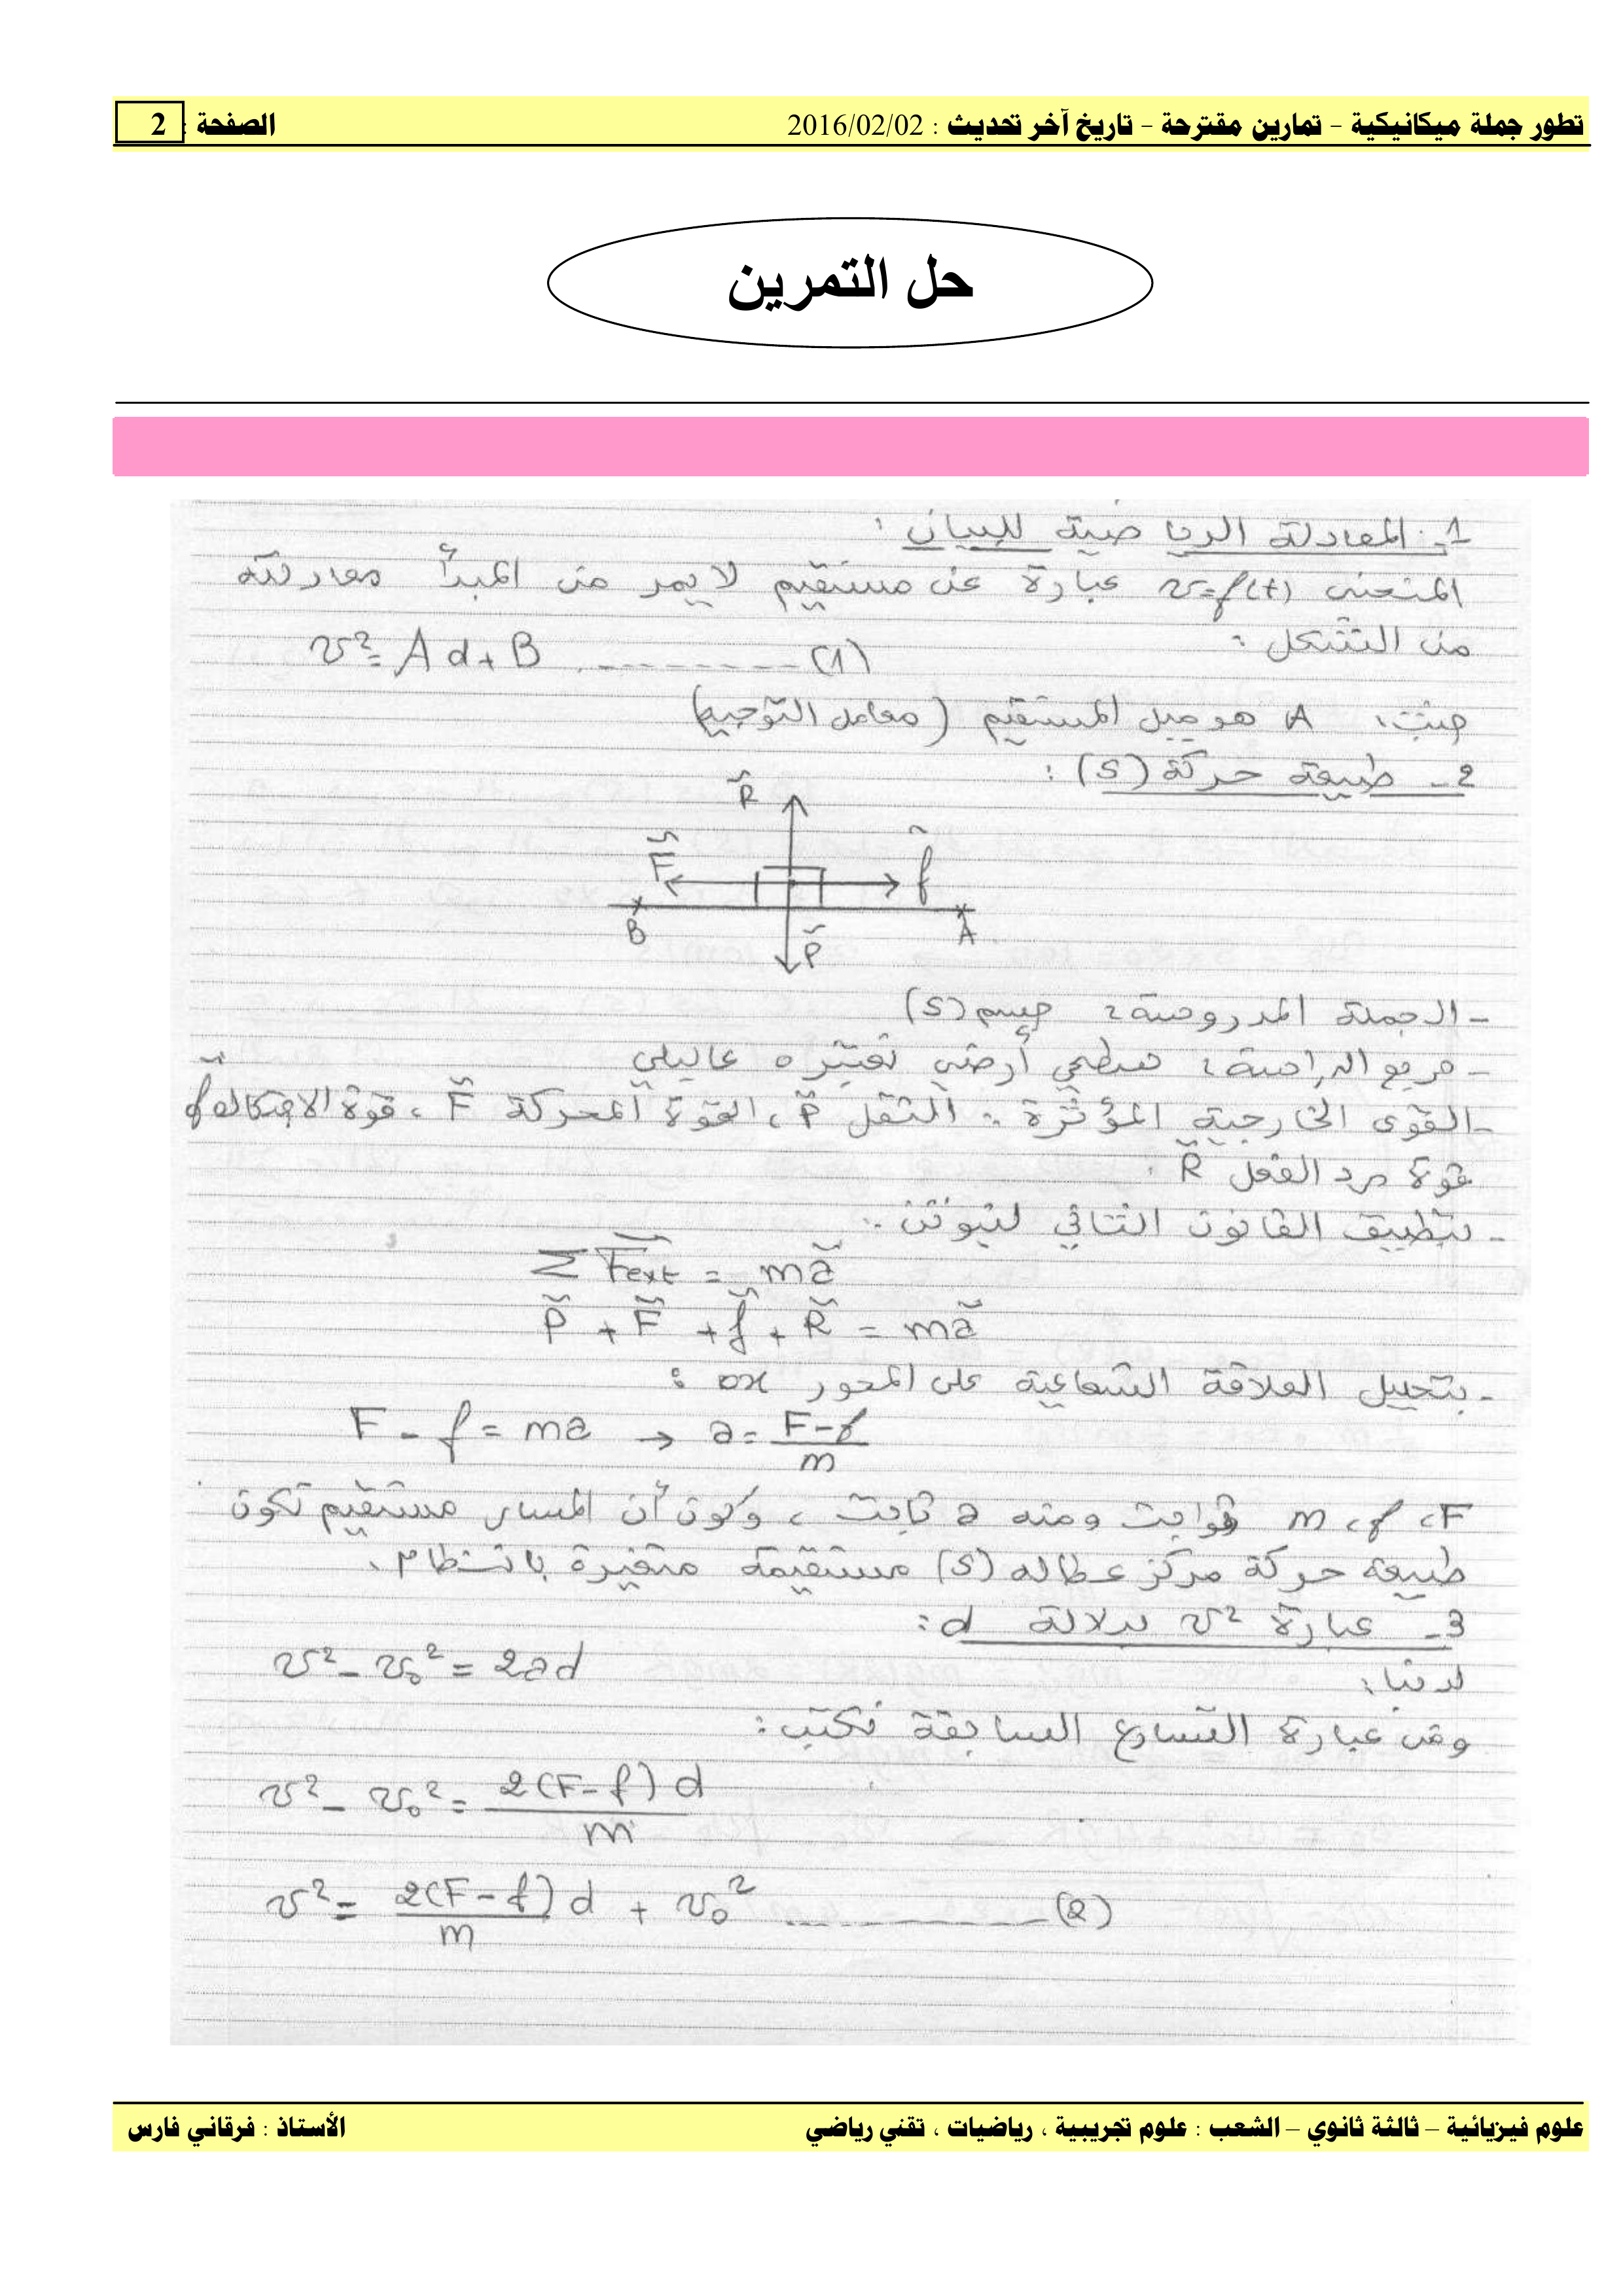 تطور جملة ميكانيكية - تمارين مقترحة - تاريخ آخر تحديث : 2016/02/02 الصفحة : 2
حل التمرين
1- المعادلة الرياضية للبيان :
المنحنى v=f(t) عبارة عن مستقيم لا يمر من المبدأ معادلته
من الشكل :
v² = Ad + B ---------(1)
حيث، A هو ميل المستقيم (معامل التوجيه)
2- طبيعة حركة (S) :
R
F f
B P A
- الجملة المدروسة : جسم (S)
- مرجع الدراسة : سطحي أرضي نعتبره غاليلي
- القوى الخارجية المؤثرة : الثقل P ، القوة المحركة F ، قوة الاحتكاك f
قوة رد الفعل R .
- بتطبيق القانون الثاني لنيوتن :
Σ Fext = ma
P + F + f + R = ma
- بتحليل العلاقة الشعاعية على المحور ox :
F - f = ma → a = F-f / m
F ، f ، m ثوابت ومنه a ثابت ، وكون أن المسار مستقيم تكون
طبيعة حركة مركز عطالة (S) مستقيمة متغيرة بانتظام .
3- عبارة v² بدلالة d :
لدينا :
v² - v₀² = 2ad
ومن عبارة التسارع السابقة نكتب :
v² - v₀² = 2(F-f)d / m
v² = 2(F-f)/m d + v₀² ---------(2)
علوم فيزيائية – ثالثة ثانوي – الشعب : علوم تجريبية ، رياضيات ، تقني رياضي الأستاذ : فرقاني فارس